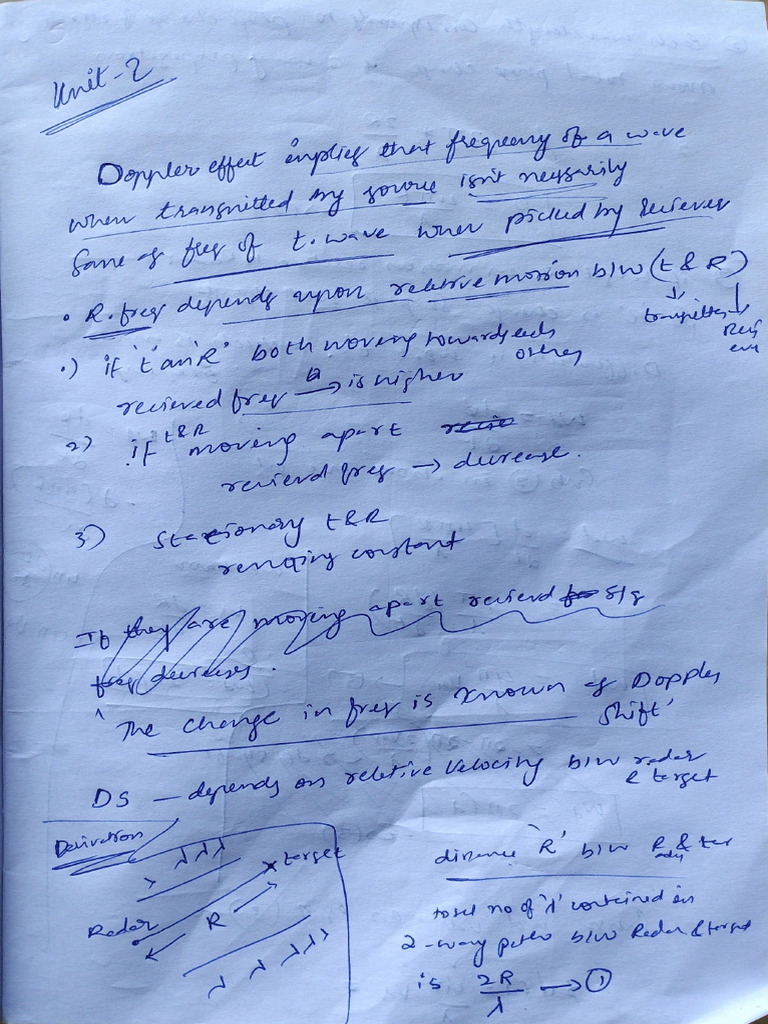 Unit-2
Doppler effect implies that frequency of a wave
when transmitted by source isn't nessarily
Same as freq of t. wave when picked by reciever
• R. freq depends upon relative motion b/w (t & R)
transmitter
.) if 't' an 'R' both moving towards each
other
recieved freq → is higher
2) if t&R moving apart
recievd freq → decrease.
3) Stationary t&R
constant
If they are moving apart recievd sig
freq decreases.
'The change in freq is known as Doppler
shift'
DS — depends on reletive velocity b/w radar
& target
Derivation
λ λ λ
target
Radar
R
λ λ λ λ
distance 'R' b/w R & tar
total no of 'λ' contained in
2-way path b/w Radar & target
is 2R/λ → ①